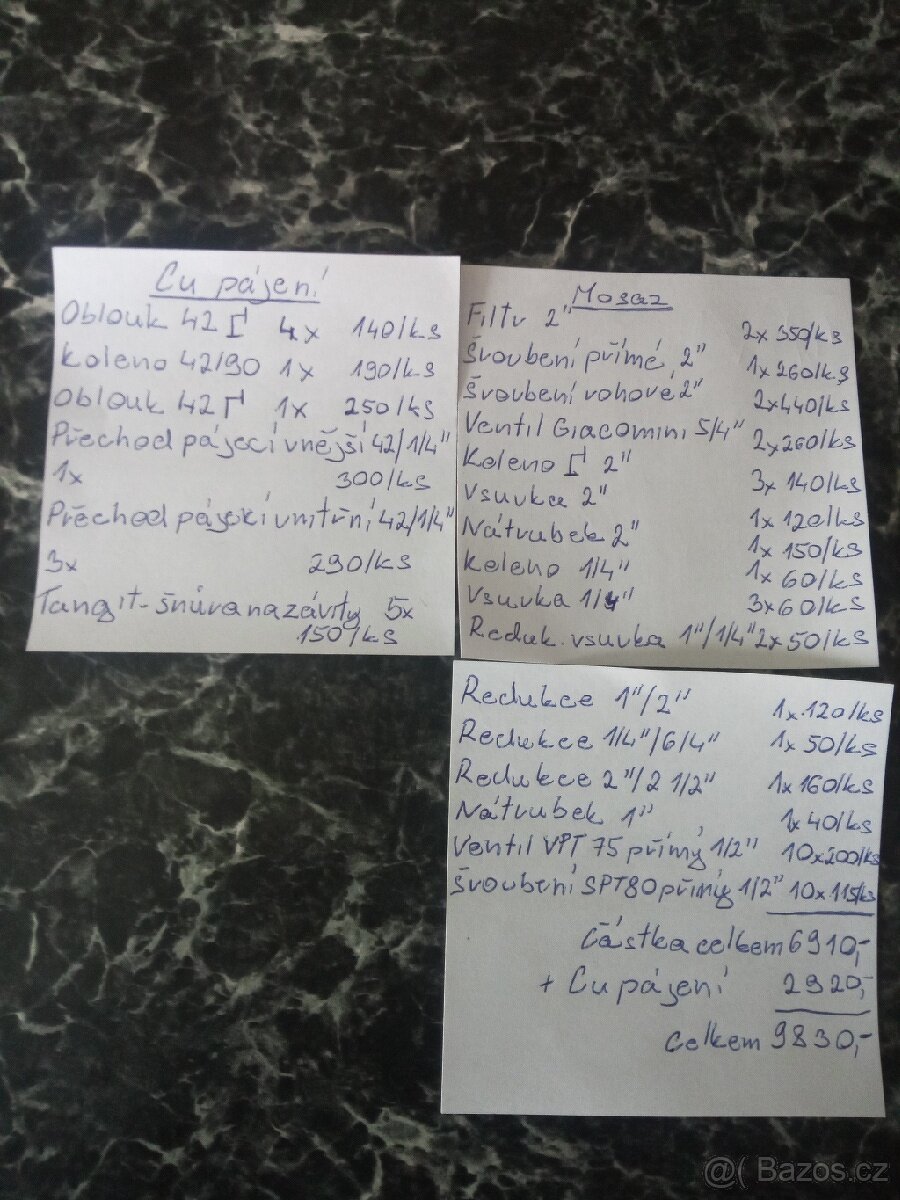 Cu pájení
Oblouk 42 4x 140/ks
Koleno 42/90 1x 190/ks
Oblouk 42 1x 250/ks
Přechod pájecí vnější 42/1/4"
1x 300/ks
Přechod pájecí vnitřní 42/1/4"
3x 290/ks
Tangit-šnůra na závity 5x
150/ks
Mosaz
Filtr 2" 2x 350/ks
Šroubení přímé 2" 1x 260/ks
Šroubení rohové 2" 2x 440/ks
Ventil Giacomini 5/4" 2x 260/ks
Koleno 2" 3x 140/ks
Vsuvka 2" 1x 120/ks
Nátrubek 2" 1x 150/ks
Koleno 1/4" 1x 60/ks
Vsuvka 1/4" 3x 60/ks
Reduk. vsuvka 1"/1/4" 2x 50/ks
Redukce 1"/2" 1x 120/ks
Redukce 1/4"/6/4" 1x 50/ks
Redukce 2"/2 1/2" 1x 160/ks
Nátrubek 1" 1x 40/ks
Ventil VPT 75 přímý 1/2" 10x200/ks
Šroubení SPT80 přímý 1/2" 10x115/ks
částka celkem 6910,-
+ Cu pájení 2920,-
celkem 9830,-
@( Bazos.cz